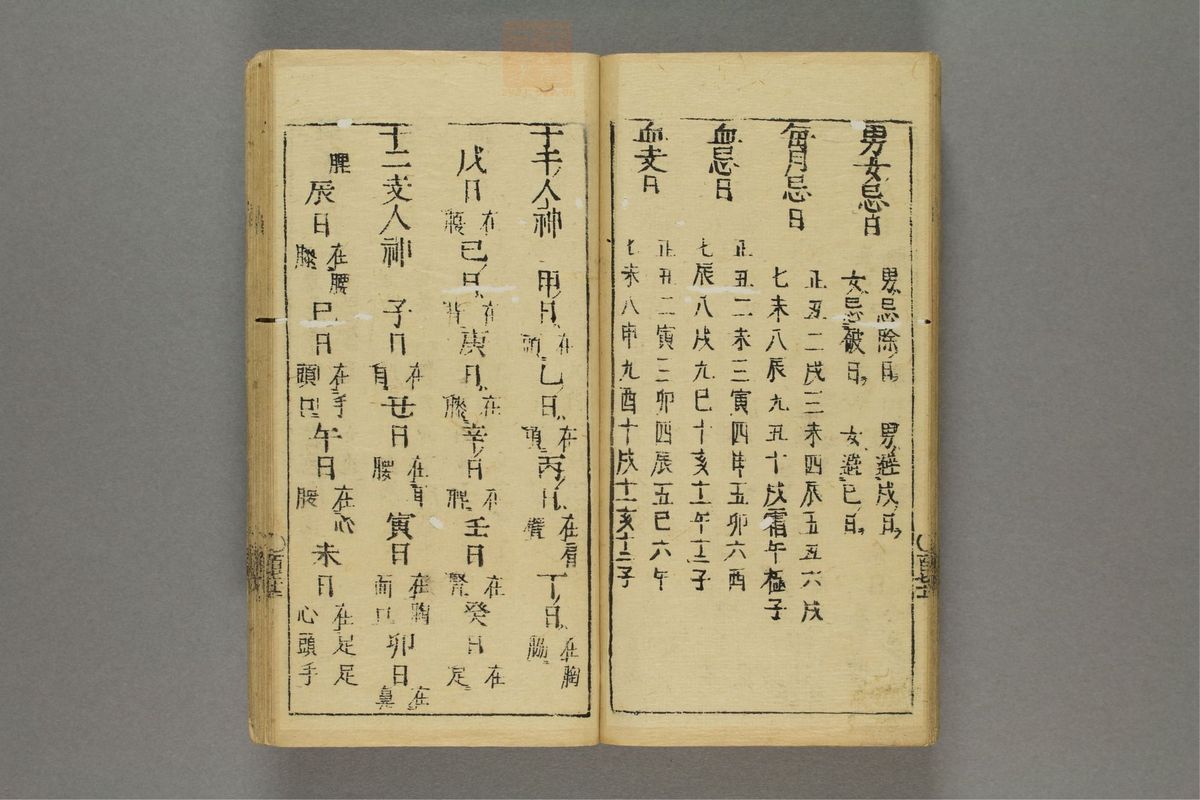 男女忌日
男忌除日 男避戌日
女忌破日 女避巳日
每月忌日
正丑二戌三未四辰五丑六戌
七未八辰九丑十戌霜午極子
血忌日
正丑二未三寅四申五卯六酉
七辰八戌九巳十亥十一午十二子
血支日
正丑二寅三卯四辰五巳六午
七未八申九酉十戌十一亥十二子
十干人神 甲日在頭乙日在項丙日在肩臂丁日在胸脇
戊日在腹己日在背庚日在膝辛日在脾壬日在腎癸日在足
十二支人神 子日在目丑日在耳腰寅日在胸面口卯日在鼻
脾辰日在腰膝巳日在手頭口午日在心腰未日在足足心頭手